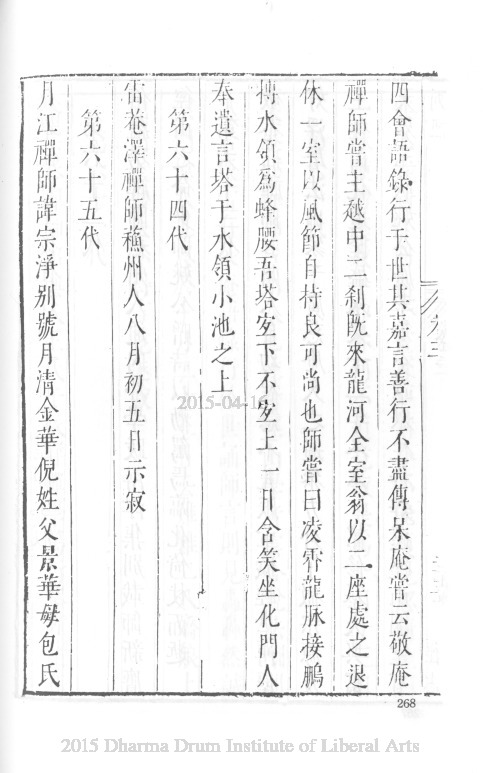 四會語錄行于世其嘉言善行不盡傳呆庵嘗云敬庵
禪師嘗主越中二刹旣來龍河全室翁以二座處之退
休一室以風節自持良可尚也師嘗曰凌霄龍脈接鵬
摶水領爲蜂腰吾塔宜下不宜上一日含笑坐化門人
奉遺言塔于水領小池之上
第六十四代
雷菴澤禪師蘓州人八月初五日示寂
第六十五代
月江禪師諱宗淨别號月清金華倪姓父景華母包氏
卷三
268
2015-04-16
2015 Dharma Drum Institute of Liberal Arts